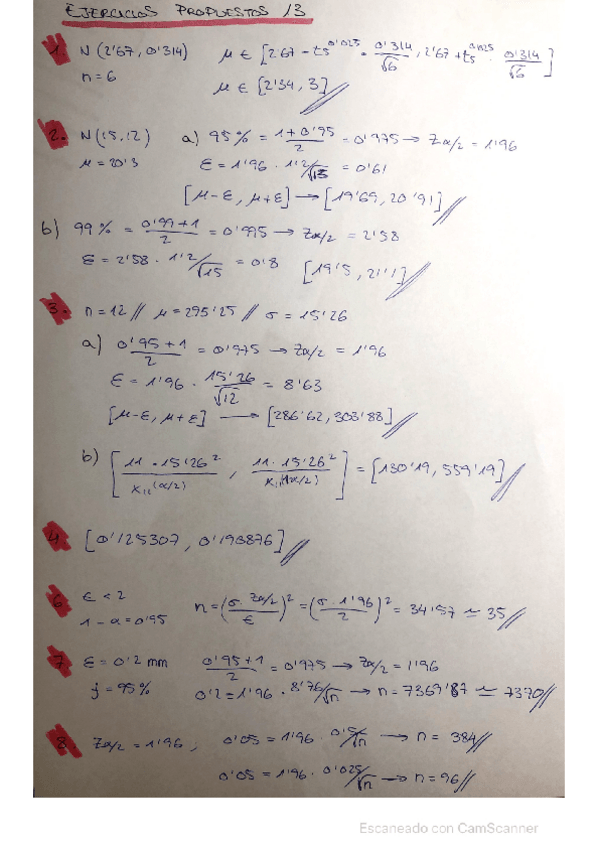 EJERCICIOS PROPUESTOS 13
1. N(2'67, 0'314) μ ∈ [2'67 - t₅^0'025 · 0'314/√6, 2'67 + t₅^0'025 · 0'314/√6]
n = 6 μ ∈ [2'34, 3]
2. N(15,12) a) 95% = 1+0'95/2 = 0'975 → Zα/2 = 1'96
μ = 20'3 ε = 1'96 · 1'2/√15 = 0'61
[μ-ε, μ+ε] → [19'69, 20'91]
b) 99% = 0'99+1/2 = 0'995 → Zα/2 = 2'58
ε = 2'58 · 1'2/√15 = 0'8 [19'5, 21'1]
3. n=12 // μ=295'25 // σ = 15'26
a) 0'95+1/2 = 0'975 → Zα/2 = 1'96
ε = 1'96 · 15'26/√12 = 8'63
[μ-ε, μ+ε] → [286'62, 303'88]
b) [11 · 15'26²/X₁₁(α/2), 11 · 15'26²/X₁₁(1α/2)] = [130'19, 559'19]
4. [0'125307, 0'193876]
6. ε < 2 n = (σ · Zα/2/ε)² = (σ · 1'96/2)² = 34'57 ≃ 35
1 - α = 0'95
7. ε = 0'2 mm 0'95+1/2 = 0'975 → Zα/2 = 1'96
f = 95% 0'2 = 1'96 · 8'76/√n → n = 7369'87 ≃ 7370
8. Zα/2 = 1'96, 0'05 = 1'96 · 0'5/√n → n = 384
0'05 = 1'96 · 0'025/√n → n = 96
Escaneado con CamScanner